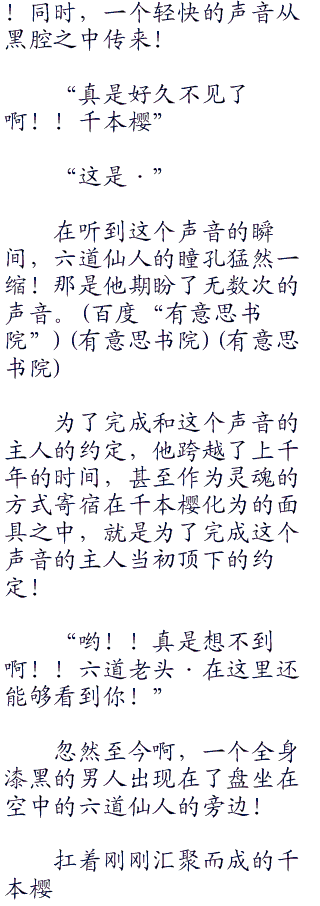 ！同时，一个轻快的声音从
黑腔之中传来！
“真是好久不见了
啊！！千本樱”
“这是·”
在听到这个声音的瞬
间，六道仙人的瞳孔猛然一
缩！那是他期盼了无数次的
声音。(百度“有意思书
院”)(有意思书院)(有意思
书院)
为了完成和这个声音的
主人的约定，他跨越了上千
年的时间，甚至作为灵魂的
方式寄宿在千本樱化为的面
具之中，就是为了完成这个
声音的主人当初顶下的约
定！
“哟！！真是想不到
啊！！六道老头·在这里还
能够看到你！”
忽然至今啊，一个全身
漆黑的男人出现在了盘坐在
空中的六道仙人的旁边！
扛着刚刚汇聚而成的千
本樱